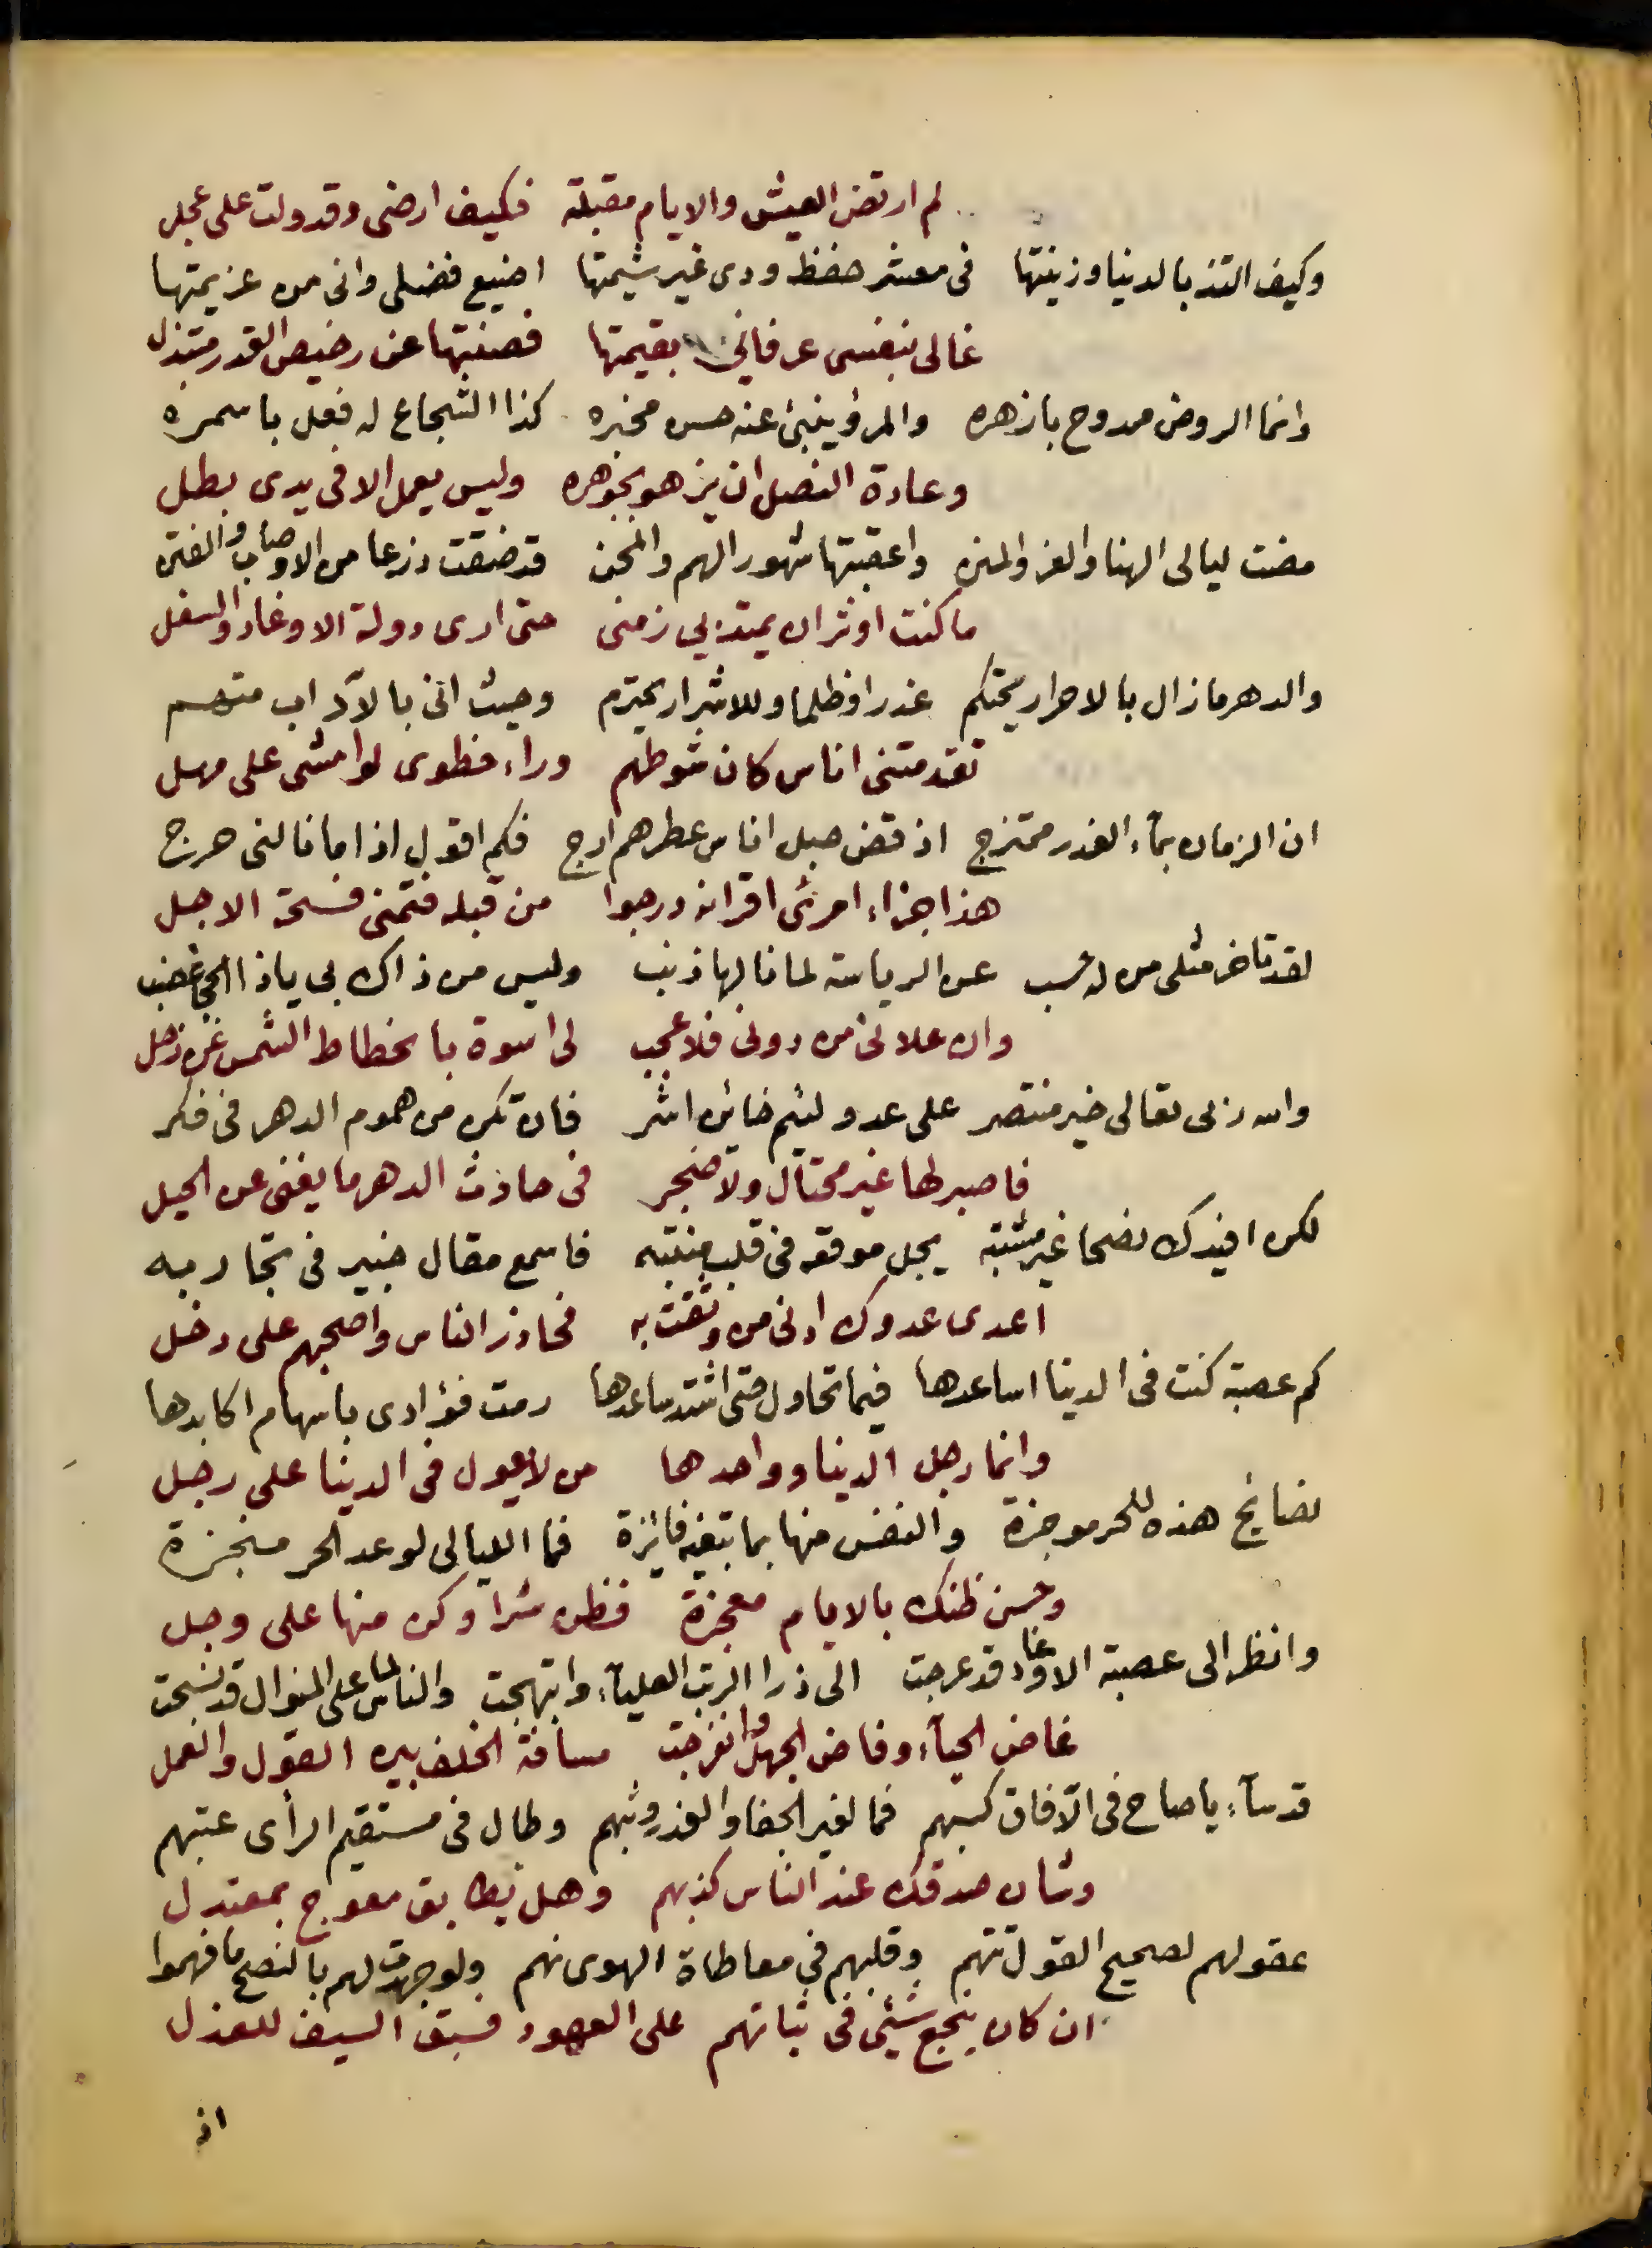 لم ارتض العيش والايام مقبلة فكيف ارضى وقد ولت على عجل
وكيف التذ بالدنيا وزينتها فى معشر حفظ ودى غير شيمتها اضيع فضلى وانى من عزيمتها
غالى بنفسى عرفانى بقيمتها فصنتها عن رخيص القدر مبتذل
وانما الروض ممدوح بازهره والمرؤ ينبئ عنه حسن مخبره كذا الشجاع له فعل باسمره
وعادة النصل ان يزهو بجوهره وليس يعمل الا فى يدى بطل
مضت ليالى الهنا والعز والمنن واعقبتها شهور الهم والمحن قد ضقت ذرعا من الاوصاب والفتن
ما كنت اوثر ان يمتد بي زمنى حتى ارى دولة الاوغاد والسفل
والدهر ما زال بالاحرار يحتكم غدرا وظلما وللاشرار يحترم وحيث انى بالآداب متسم
تقدمتنى اناس كان شوطهم وراء خطوى لو امشى على مهل
ان الزمان بمآء الغدر ممتزج اذ قض حبل اناس عطرهم ارج فكم اقول اذا ما نالنى حرج
هذا جزاء امرئ اقرانه درجوا من قبله فتمنى فسحة الاجل
لقد تاخر مثلى من له حسب عن الرياسة لما نالها ذنب وليس من ذاك بى ياذا الحجى غضب
وان علانى من دونى فلا عجب لى اسوة بانحطاط الشمس عن زحل
والله ربى تعالى خير منتصر على عدو لئيم خائن اشر فان تكن من هموم الدهر فى فكر
فاصبر لها غير محتال ولا ضجر فى حادث الدهر ما يغنى عن الحيل
لكن افيدك نصحا غير مشتبه يجل موقعه فى قلب منتبه فاسمع مقال خبير فى تجاربه
اعدى عدوك ادنى من وثقت به فحاذر الناس واصحبهم على دخل
كم عصبة كنت فى الدنيا اساعدها فيما تحاول حتى اشتد ساعدها رمت فؤادى باسهام اكابدها
وانما رجل الدنيا وواحدها من لا يعول فى الدنيا على رجل
نصايح هذه للحر موجزة والنفس منها بما تبغيه فايزة فما الليالى لوعد الحر منجزة
وحسن ظنك بالايام معجزة فظن شرا وكن منها على وجل
وانظر الى عصبة الاوغاد قد عرجت الى ذرا الرتب العليآء وابتهجت والناس على المنوال قد نسجت
غاض الحيآء وفاض الجهل وانفرجت مسافة الخلف بين القول والعمل
قد سآء ياصاح فى الآفاق كسبهم فما لغير الجفا والغدر وثبهم وطال فى مستقيم الرأى عتبهم
وشان صدقك عند الناس كذبهم وهل يطابق معوج بمعتدل
عقولهم لصحيح القول تتهم وقلبهم فى معاطاة الهوى نهم ولو جهدت لهم بالنصح ما فهموا
ان كان ينجع شيئ فى ثباتهم على العهود فسبق السيف للعذل
اذ